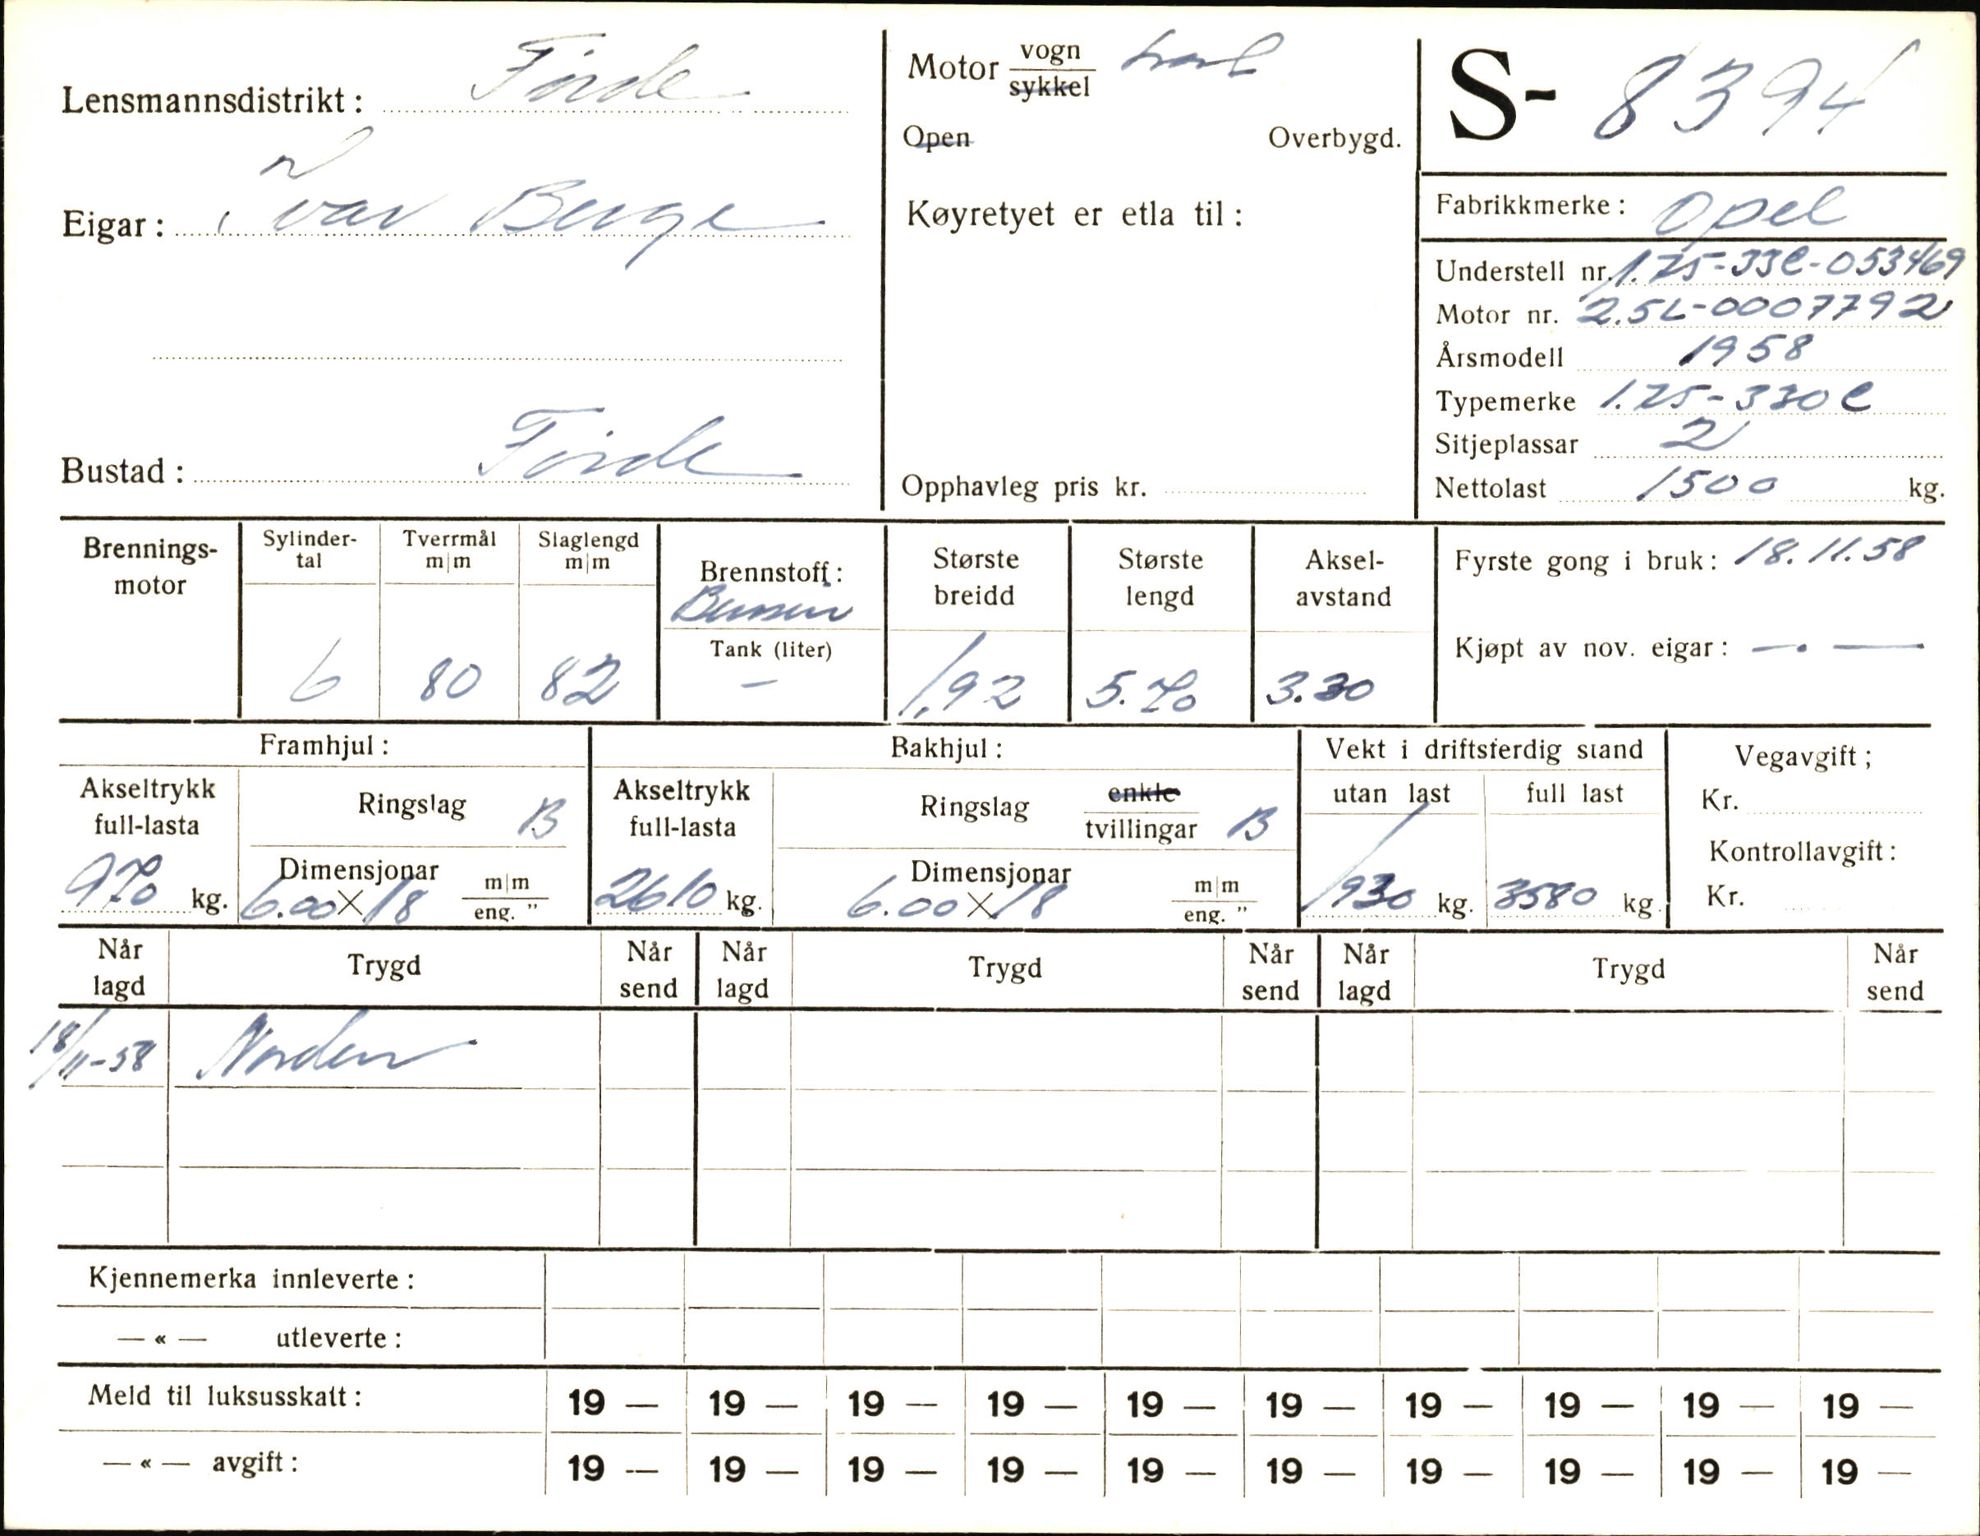 Lensmannsdistrikt: Førde
Eigar: Ivar Berge
Bustad: Førde
Motor vogn
sykkel
Open Overbygd.
Køyretyet er etla til:
Opphavleg pris kr.
S- 8394
Fabrikkmerke: Opel
Understell nr. 1.75-33C-053469
Motor nr. 2.5L-0007792
Årsmodell 1958
Typemerke 1.75-330C
Sitjeplassar 2
Nettolast 1500 kg.
Brennings-
motor
Sylinder-
tal
6
Tverrmål
m/m
80
Slaglengd
m/m
82
Brennstoff:
Bensin
Tank (liter)
—
Største
breidd
1,92
Største
lengd
5.70
Aksel-
avstand
3.30
Fyrste gong i bruk: 18.11.58
Kjøpt av nov. eigar: —.—
Framhjul:
Akseltrykk
full-lasta
970 kg.
Ringslag B
Dimensjonar
6.00 X 18 m/m
eng. "
Bakhjul:
Akseltrykk
full-lasta
2610 kg.
Ringslag enkle
tvillingar B
Dimensjonar
6.00 X 18 m/m
eng. "
Vekt i driftsferdig stand
utan last full last
1930 kg. 3580 kg.
Vegavgift;
Kr.
Kontrollavgift:
Kr.
Når
lagd Trygd Når
send Når
lagd Trygd Når
send Når
lagd Trygd Når
send
18/11-58 Norden
Kjennemerka innleverte:
—«— utleverte:
Meld til luksusskatt: 19 — 19 — 19 — 19 — 19 — 19 — 19 — 19 — 19 — 19 —
—«— avgift: 19 — 19 — 19 — 19 — 19 — 19 — 19 — 19 — 19 — 19 —